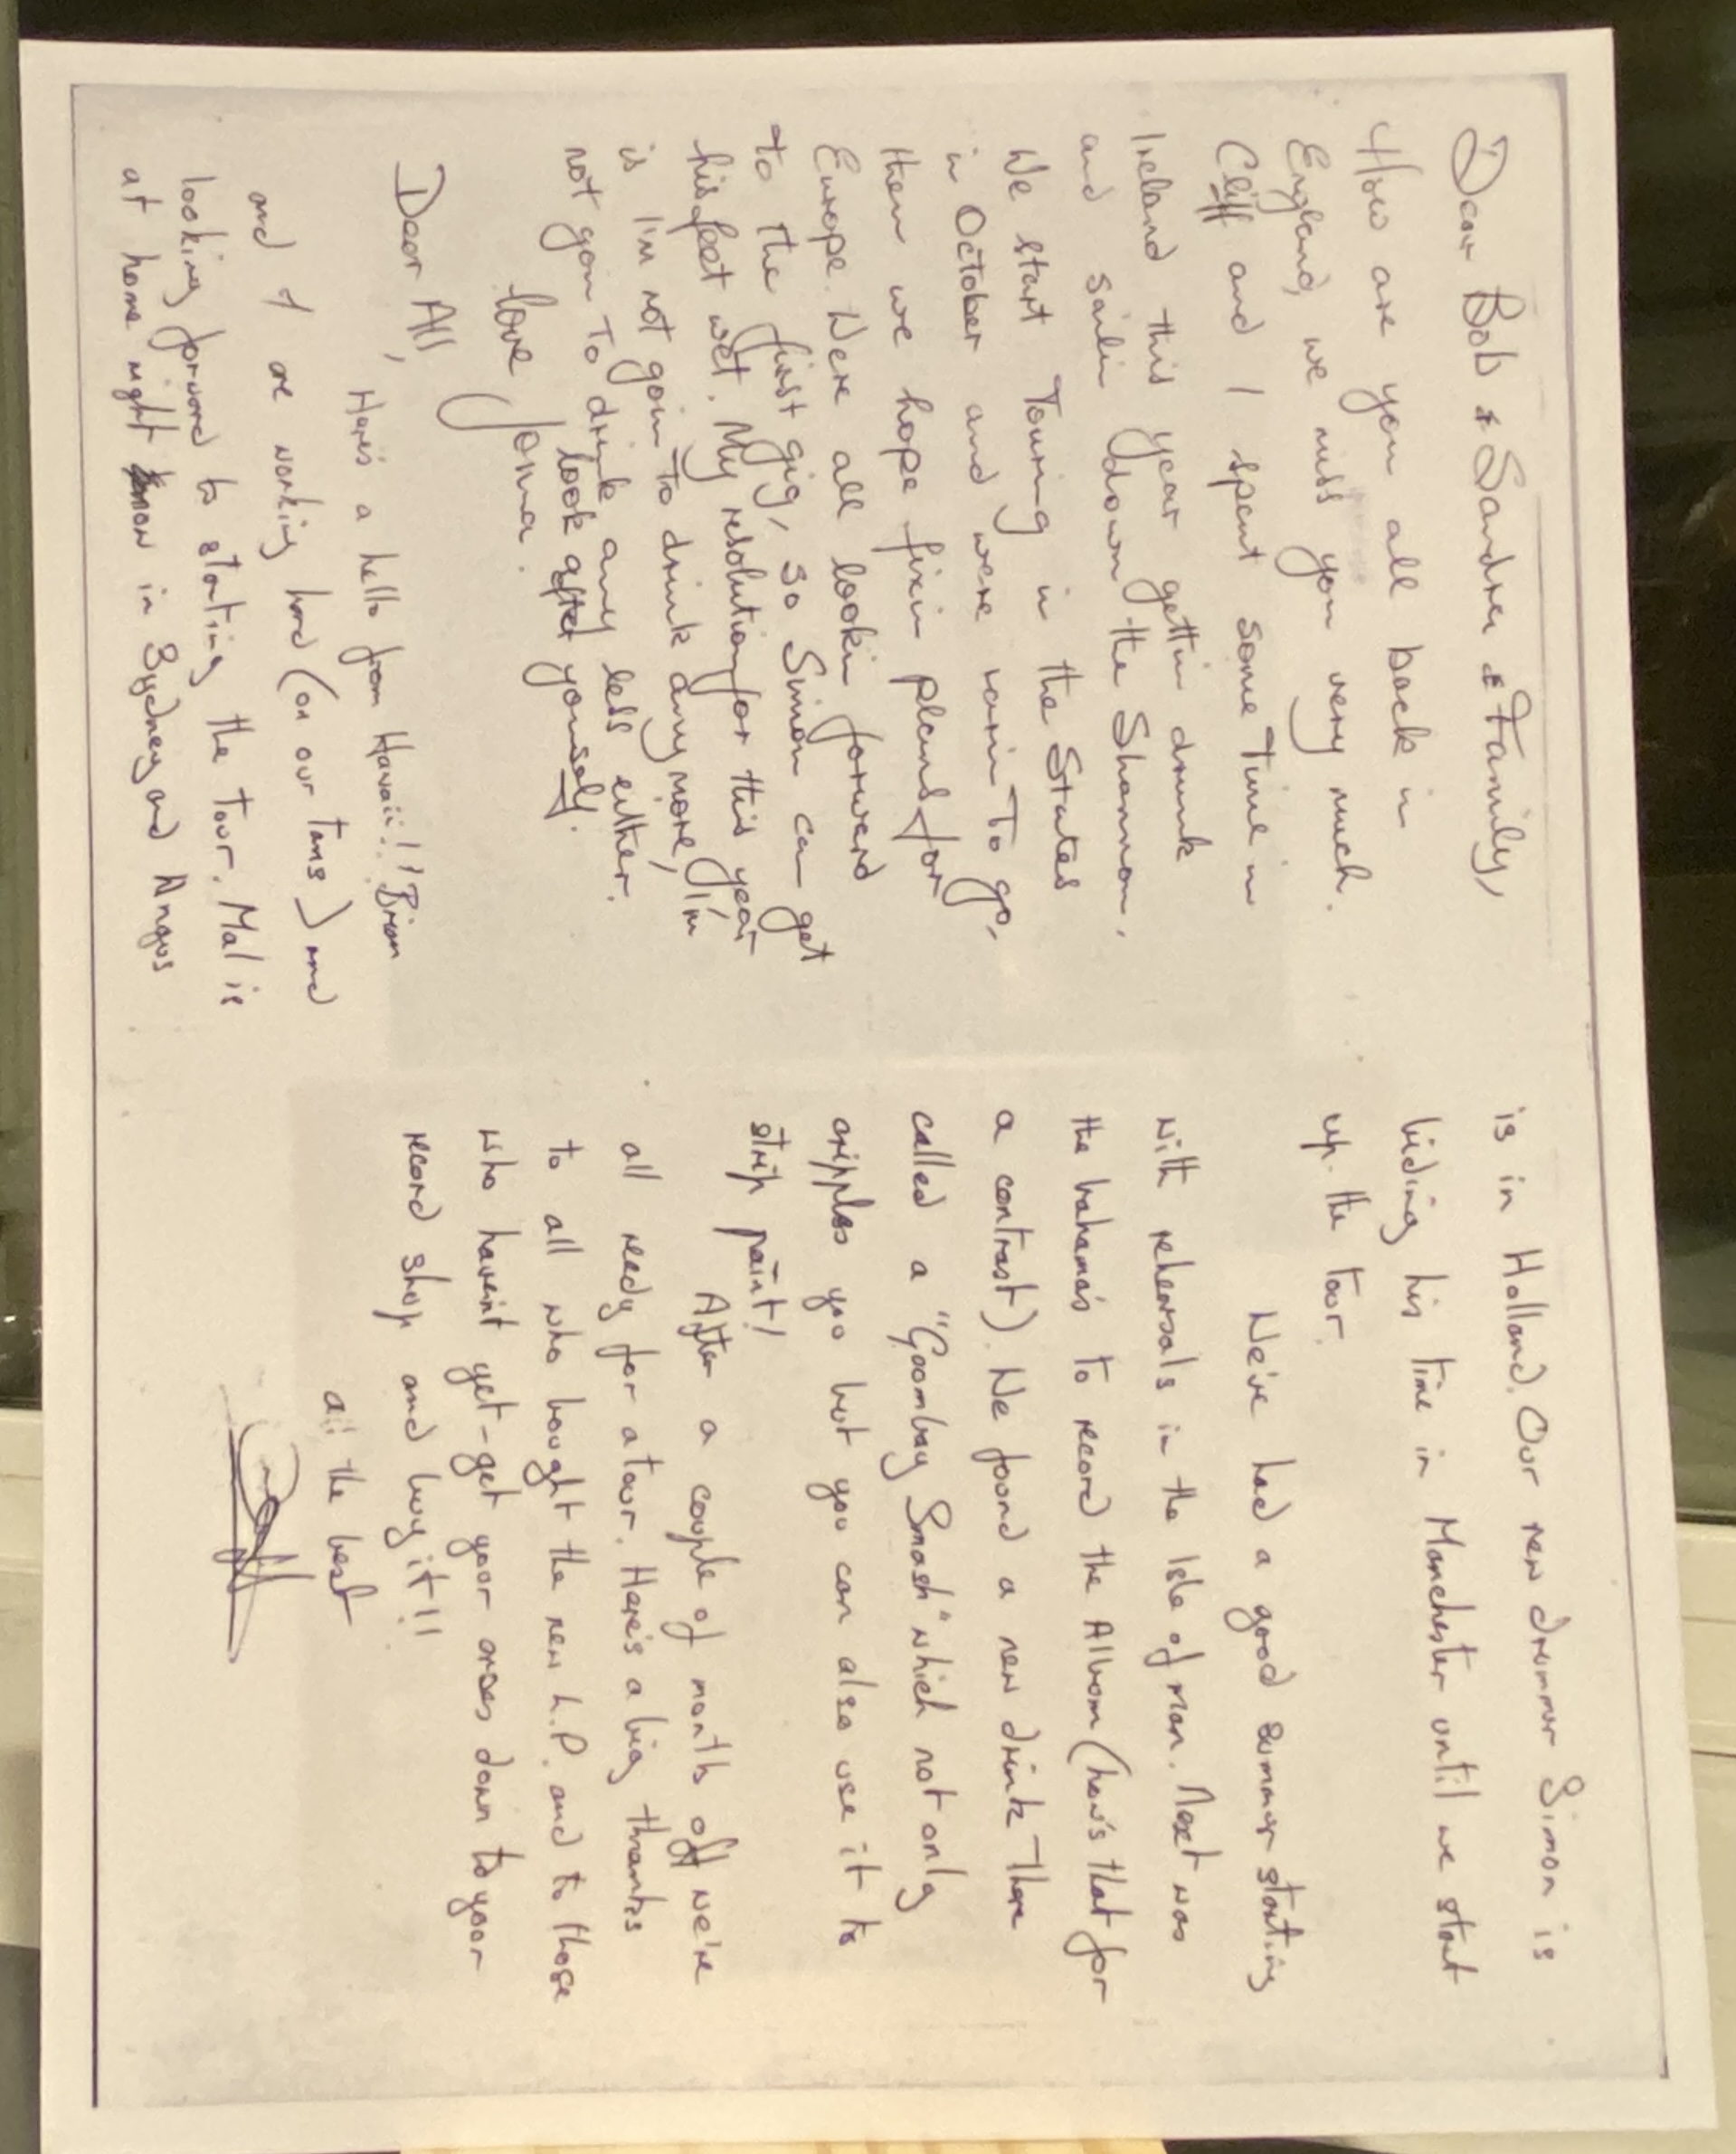 Dear Bob & Sandra & Family,
How are you all back in
England, we miss you very much.
Cliff and I spent some Time in
Ireland this year gettin drunk
and sailin down the Shannon,
We start Touring in the States
in October and were rarin To go,
then we hope fixin plans for
Europe. Were all lookin forward
to the first gig, so Simon can get
his feet wet. My resolution for this year
is I'm not goin To drink any more, I'm
not goin To drink any less either.
look after yourself.
love Jonna.
Dear All,
Here's a hello from Hawaii!! Brian
and I are working hard (on our tans) and
looking forward to starting the tour. Mal is
at home right now in Sydney and Angus
is in Holland. Our new drummer Simon is
biding his time in Manchester until we start
up the tour.
We've had a good summer starting
with rehearsals in the Isle of man. Next was
the bahama's to record the Album (how's that for
a contrast). We found a new drink There
called a "Goombay Smash" which not only
cripples you but you can also use it to
strip paint!
After a couple of months off we're
all ready for a tour. Here's a big thanks
to all who bought the new L.P. and to those
who haveint yet - get your arses down to your
record shop and buy it!!
all the best
Cliff